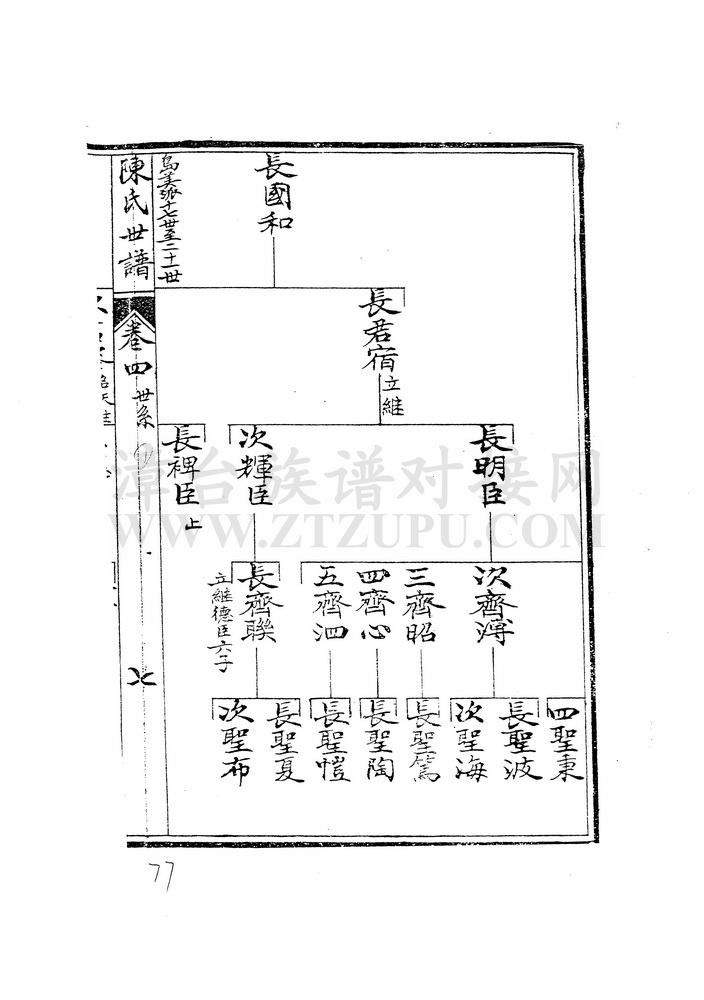 長國和
烏美派十七世至二十一世
陳氏世譜
卷四
世系
長君宿 立維
長明臣
次輝臣
長裨臣 上
次齊溥
三齊昭
四齊心
五齊泗
長齊聯
立維德臣六子
四聖秉
長聖波
次聖海
長聖篤
長聖陶
長聖愷
長聖夏
次聖布
漳台族谱对接网
WWW.ZTZUPU.COM
77